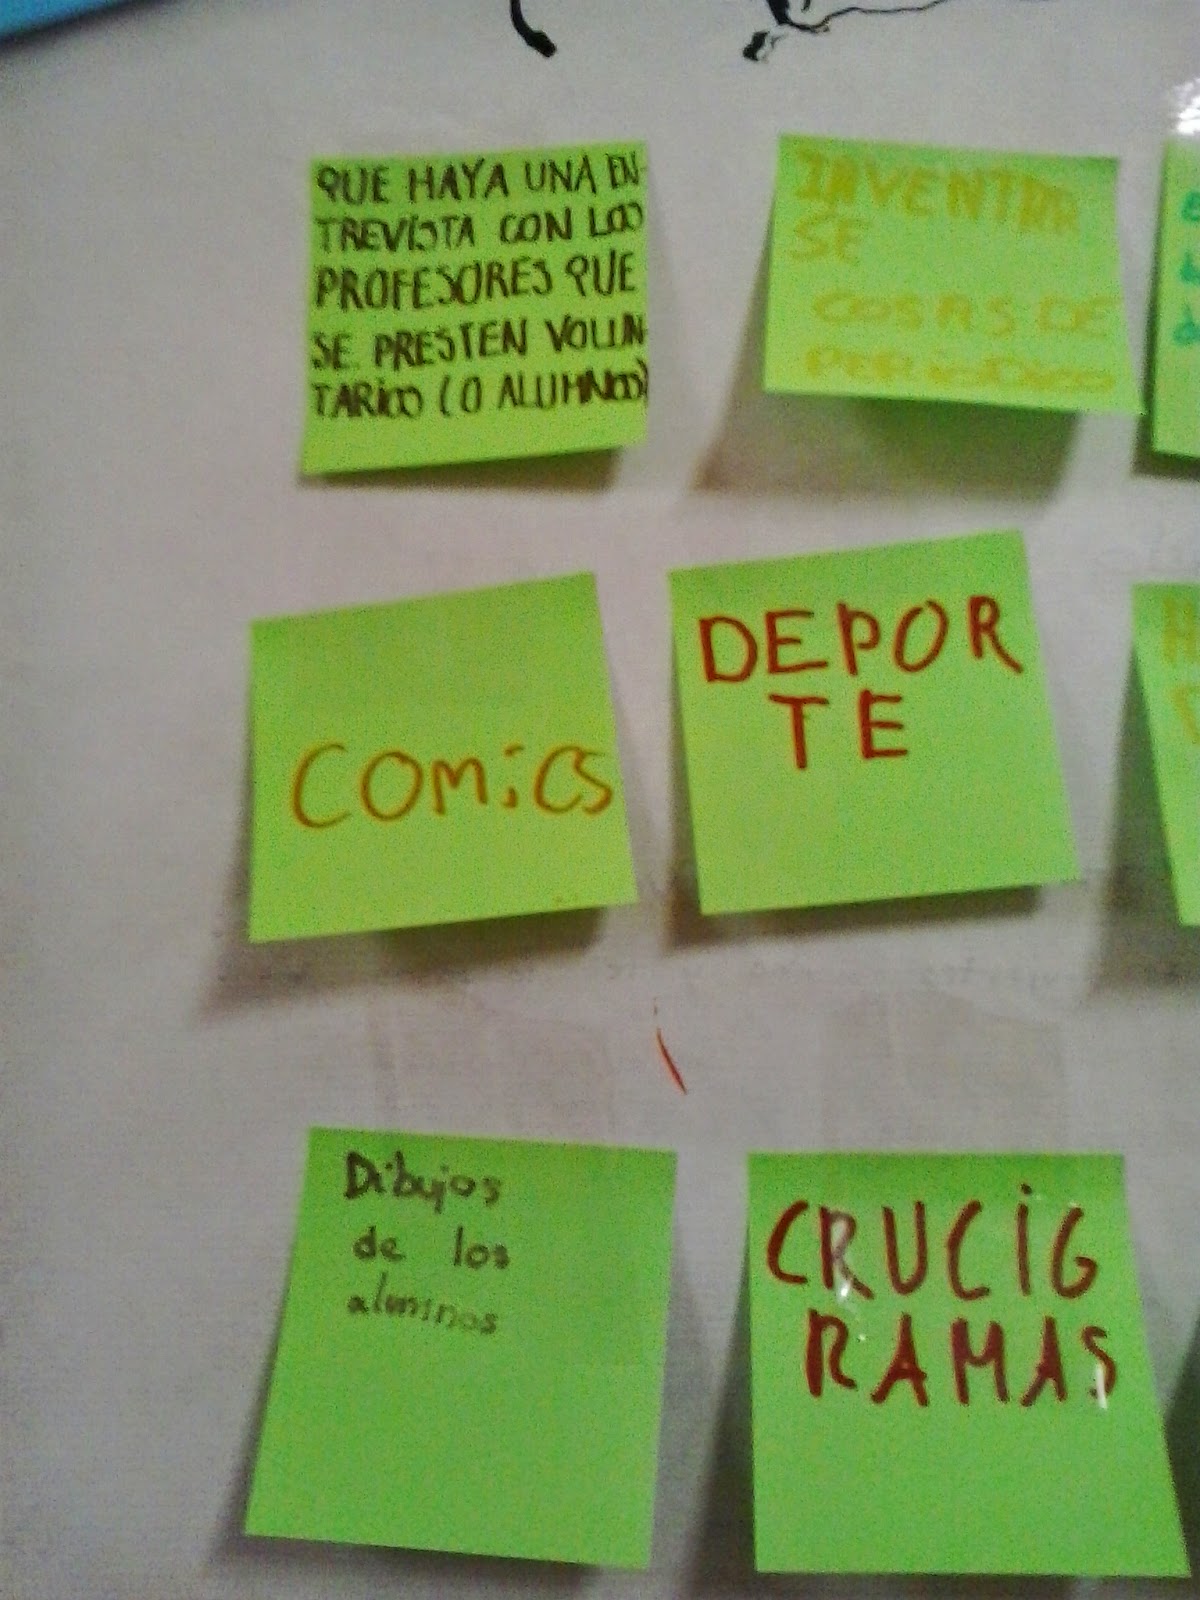 QUE HAYA UNA EN-
TREVISTA CON LOS
PROFESORES QUE
SE PRESTEN VOLUN-
TARIOS (O ALUMNOS)
INVENTAR
SE
COSAS DE
PERIODICO
COMiCS
DEPOR
TE
Dibujos
de los
aluminos
CRUCiG
RAMAS